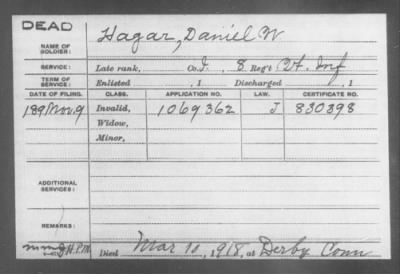 DEAD
NAME OF SOLDIER: Hagar, Daniel W
SERVICE: Late rank, Co. I, 8 Reg't Vt. Inf
TERM OF SERVICE: Enlisted , 1 Discharged , 1
DATE OF FILING. CLASS. APPLICATION NO. LAW. CERTIFICATE NO.
189 Nov. 9 Invalid, 1069362 J 830398
Widow,
Minor,
ADDITIONAL SERVICES:
REMARKS:
Died Mar 10, 1918, at Derby Conn